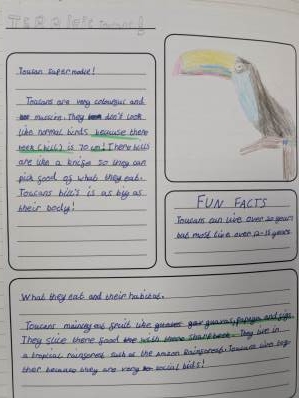 Toucan supermodel!
Toucans are very colourful and
massive. They don't look
like normal birds because there
beek (bill) is 20 cm! There bills
are like a knife so they can
pick food of what they eat.
Toucans bill's is as big as
their body!
FUN FACTS
Toucans can live over 20 years
but most live over 12-15 years.
What they eat and their habitat.
Toucans mainly eat fruit like guavas, papaya and figs.
They slice there food with there sharp beek. They live in
a tropical rainforest such as the Amazon Rainforest. Toucans live
ther because they are very social birds!